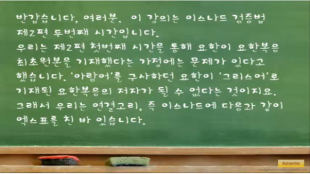 반갑습니다. 여러분. 이 강의는 이스나드 검증법
제2편 두번째 시간입니다.
우리는 제2편 첫번째 시간을 통해 요한이 요한복음
최초원본을 기재했다는 가정에는 문제가 있다고
했습니다. '아람어'를 구사하던 요한이 '그리스어'로
기재된 요한복음의 저자가 될 수 없다는 것이지요.
그래서 우리는 연결고리, 즉 이스나드에 다음과 같이
엑스표를 친 바 있습니다.